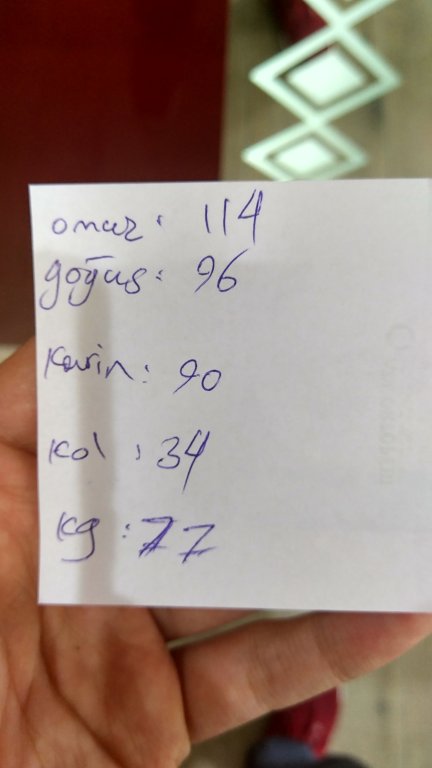 omuz: 114
göğüs: 96
Karin: 90
Kol: 34
kg: 77